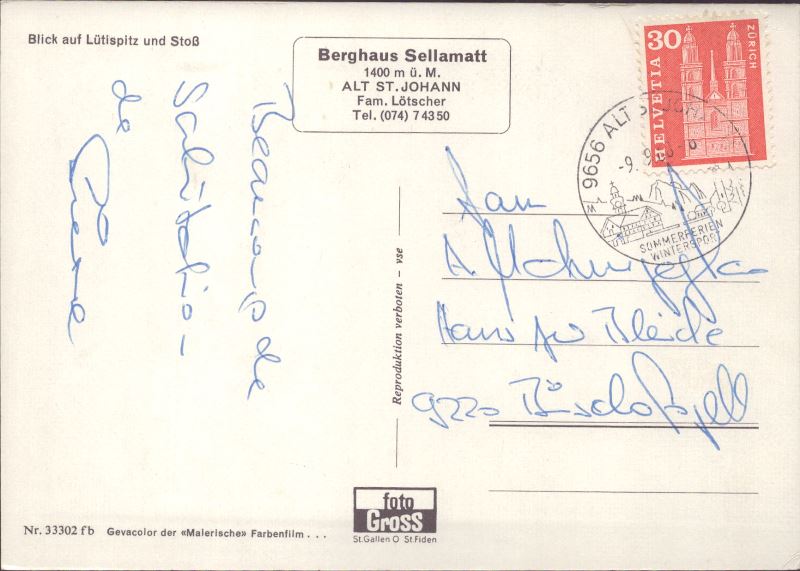 Blick auf Lütispitz und Stoß
Berghaus Sellamatt
1400 m ü. M.
ALT ST. JOHANN
Fam. Lötscher
Tel. (074) 7 43 50
30
HELVETIA
ZÜRICH
9656 ALT ST. JOH
-9. 9.
SOMMERFERIEN
WINTERSPORT
Beaucoup de
Salutatio-
de
Reproduktion verboten – vse
Fam
9220 Bischofszell
foto
Gross
St.Gallen O St.Fiden
Nr. 33302 f b Gevacolor der «Malerische» Farbenfilm . . .